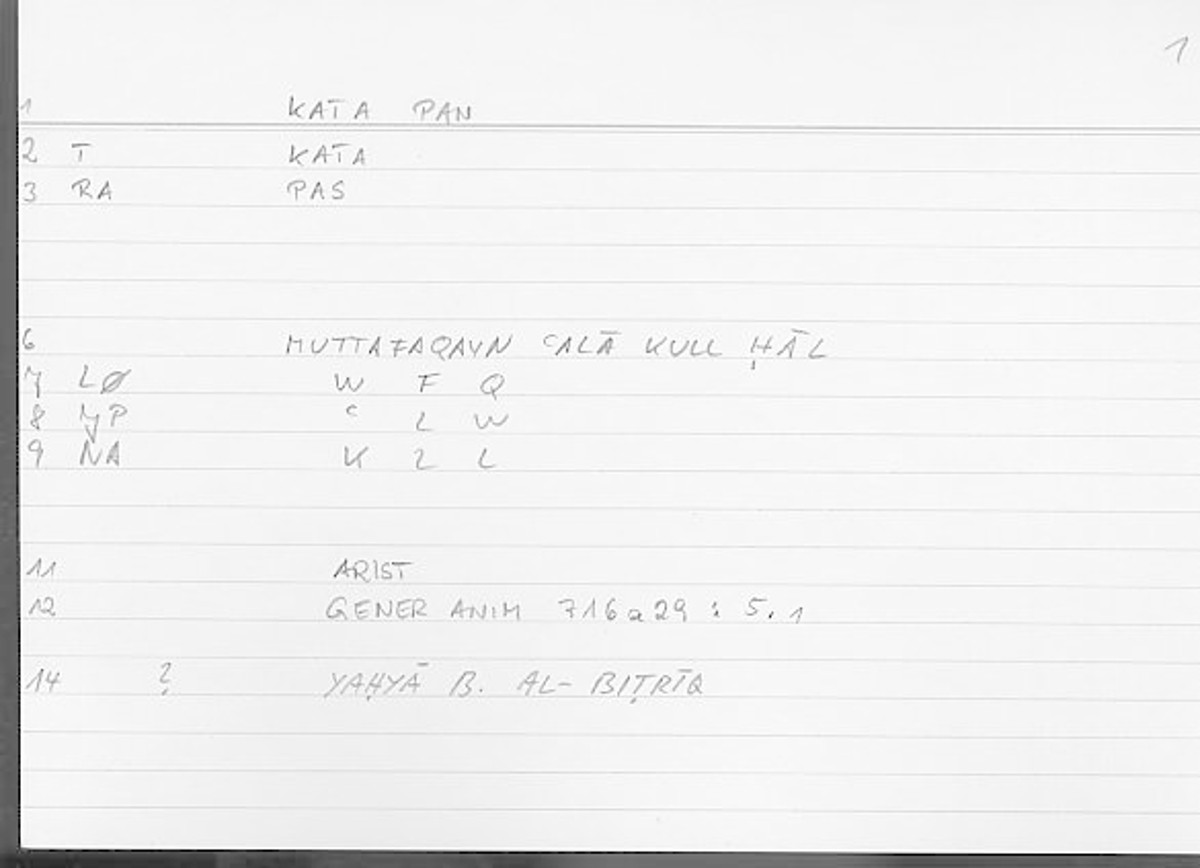 1
1 KATA PAN
2 T KATA
3 RA PAS
6 MUTTAFAQAYN ʿALĀ KULL ḤĀL
7 LØ W F Q
8 YP ʿ L W
9 NA K L L
11 ARIST
12 GENER ANIM 716a29 : 5.1
14 ? YAḤYĀ B. AL-BIṬRĪQ